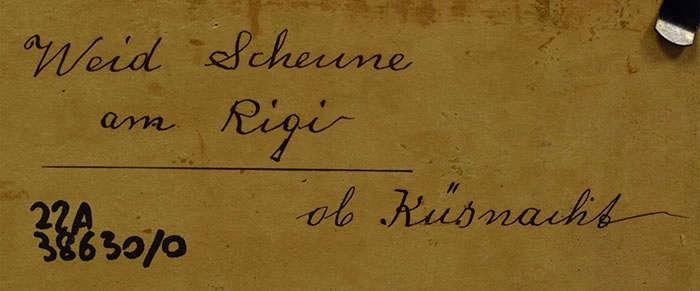 Weid Scheune
am Rigi
ob Küsnacht
22A
38630/0